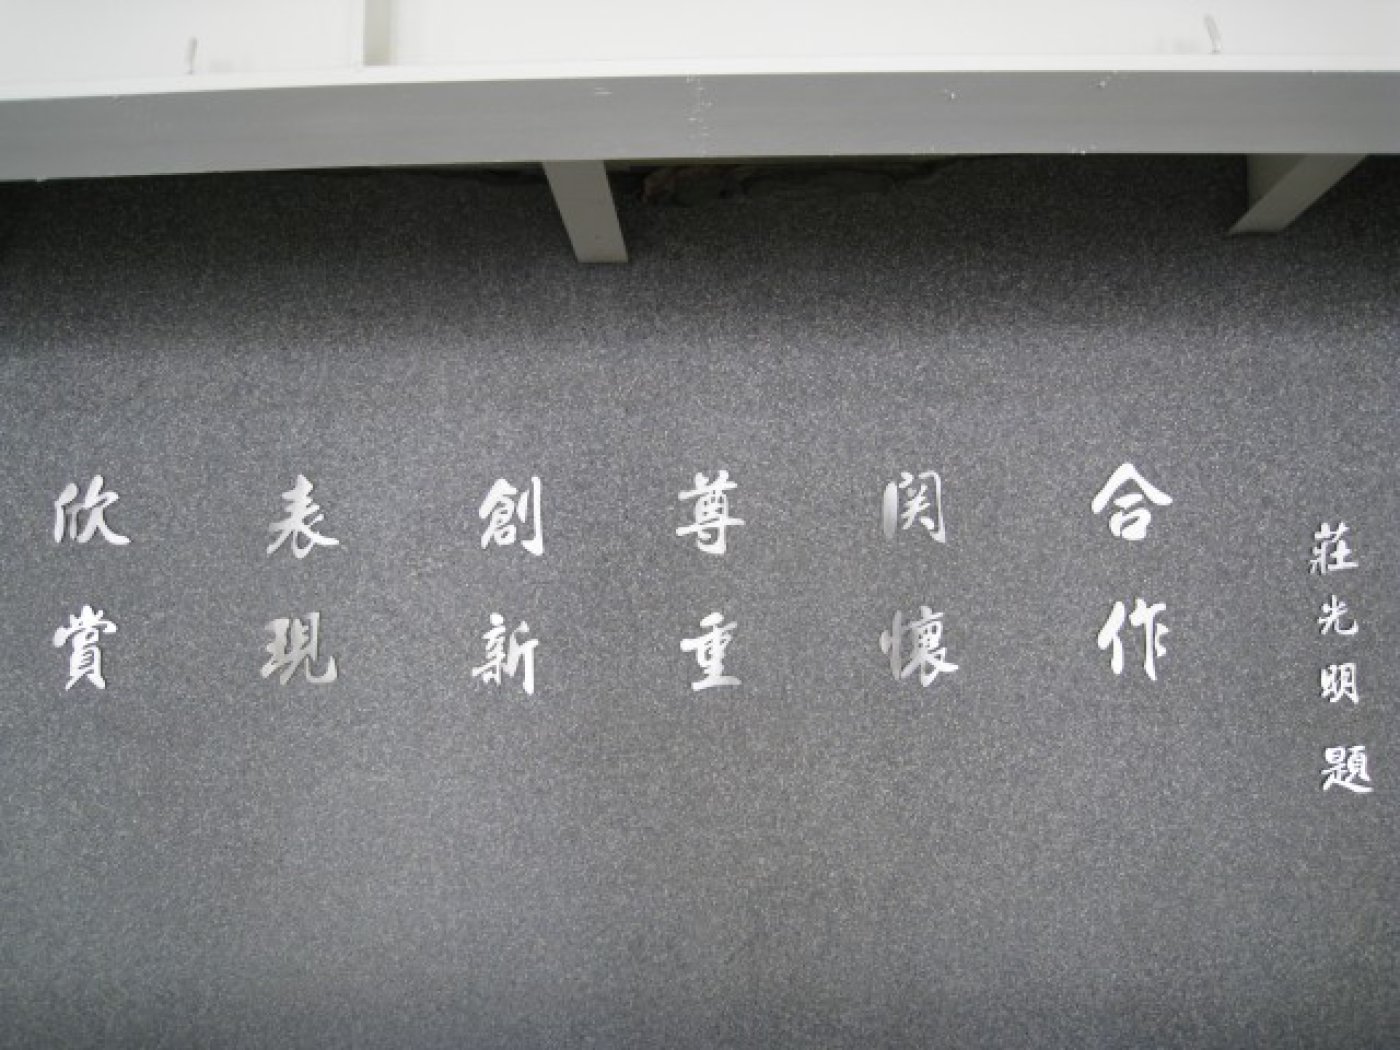 欣賞
表現
創新
尊重
関懷
合作
莊光明題